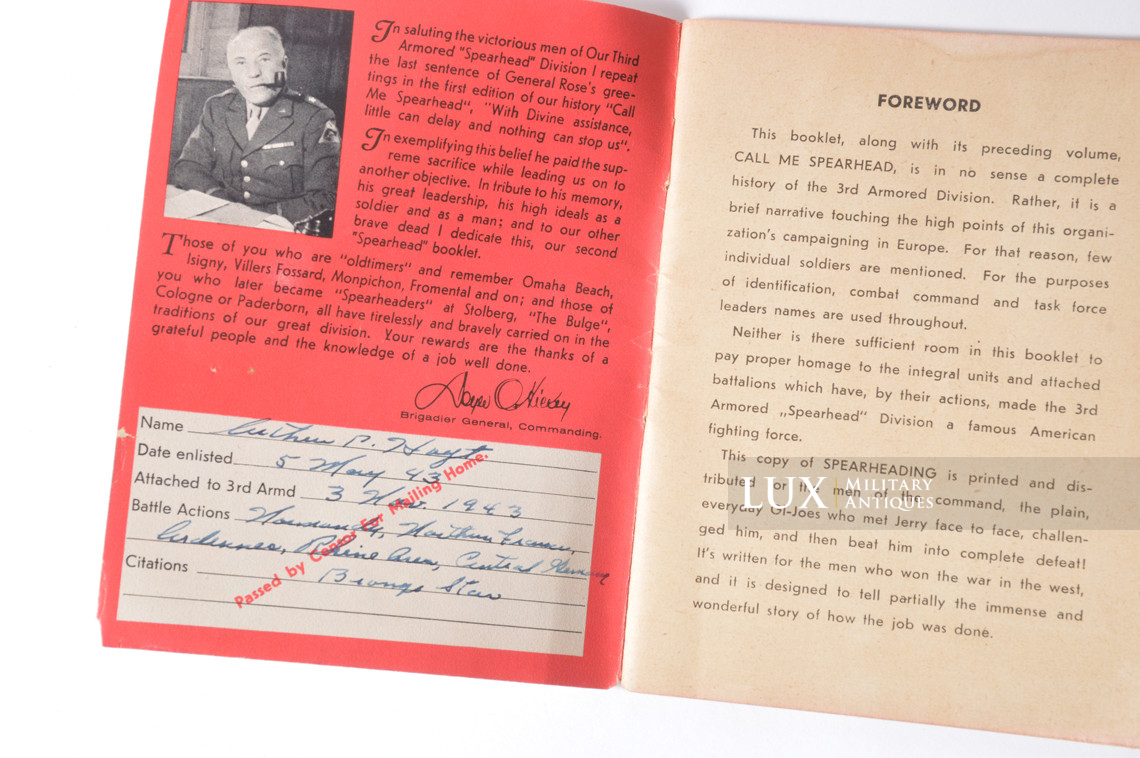 In saluting the victorious men of Our Third
Armored "Spearhead" Division I repeat
the last sentence of General Rose's gree-
tings in the first edition of our history "Call
Me Spearhead", "With Divine assistance,
little can delay and nothing can stop us".
In exemplifying this belief he paid the sup-
reme sacrifice while leading us on to
another objective. In tribute to his memory,
his great leadership, his high ideals as a
soldier and as a man; and to our other
brave dead I dedicate this, our second
"Spearhead" booklet.
Those of you who are "oldtimers" and remember Omaha Beach,
Isigny, Villers Fossard, Monpichon, Fromental and on; and those of
you who later became "Spearheaders" at Stolberg, "The Bulge",
Cologne or Paderborn, all have tirelessly and bravely carried on in the
traditions of our great division. Your rewards are the thanks of a
grateful people and the knowledge of a job well done.
Doyle O. Hickey
Brigadier General, Commanding.
Name Arthur P. Hoyt
Date enlisted 5 May 43
Attached to 3rd Armd 3 Nov. 1943
Battle Actions Normandy, Northern France,
Ardennes, Rhine Area, Central Germany
Citations Bronze Star
Passed by Censor For Mailing Home.
FOREWORD
This booklet, along with its preceding volume,
CALL ME SPEARHEAD, is in no sense a complete
history of the 3rd Armored Division. Rather, it is a
brief narrative touching the high points of this organi-
zation's campaigning in Europe. For that reason, few
individual soldiers are mentioned. For the purposes
of identification, combat command and task force
leaders names are used throughout.
Neither is there sufficient room in this booklet to
pay proper homage to the integral units and attached
battalions which have, by their actions, made the 3rd
Armored „Spearhead" Division a famous American
fighting force.
This copy of SPEARHEADING is printed and dis-
tributed for the men of the command, the plain,
everyday GI-Joes who met Jerry face to face, challen-
ged him, and then beat him into complete defeat!
It's written for the men who won the war in the west,
and it is designed to tell partially the immense and
wonderful story of how the job was done.
LUX MILITARY
ANTIQUES